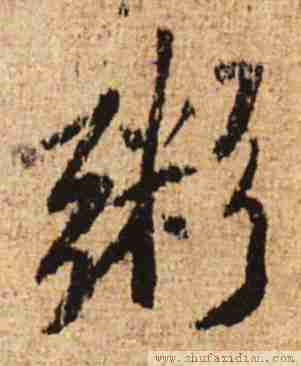 粥
www.shufazidian.com